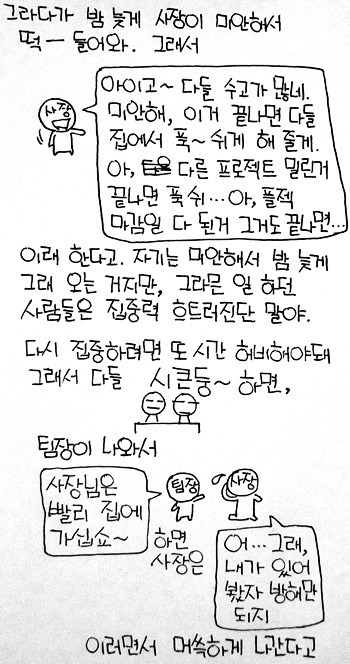 그라다가 밤 늦게 사장이 미안해서
떡ㅡ 들어와. 그래서
사장
아이고~ 다들 수고가 많네.
미안해, 이거 끝나면 다들
집에서 푹~ 쉬게 해 줄게.
아, 다른 프로젝트 밀린거
끝나면 푹 쉬... 아, 플젝
마감일 다 된거 그거도 끝나면...
이래 한다고. 자기는 미안해서 밤 늦게
그래 오는 거지만, 그라믄 일 하던
사람들은 집중력 흐트러진단 말야.
다시 집중하려면 또 시간 허비해야돼
그래서 다들 시큰둥~ 하면,
팀장이 나와서
사장님은
빨리 집에
가십쇼~
팀장
하면
사장은
사장
어... 그래,
내가 있어
봤자 방해만
되지
이러면서 머쓱하게 나간다고